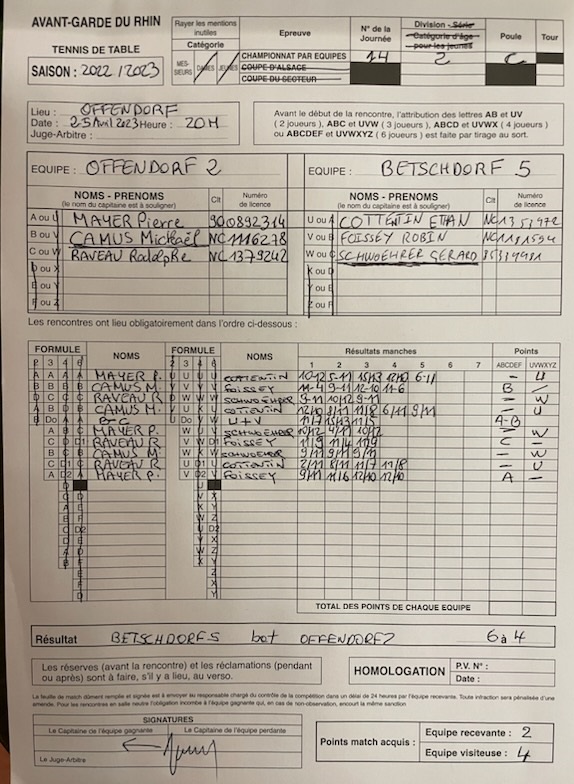 AVANT-GARDE DU RHIN
TENNIS DE TABLE
SAISON : 2022 / 2023
Rayer les mentions inutiles
Catégorie
MES-SIEURS DAMES JEUNES
Epreuve
CHAMPIONNAT PAR EQUIPES
COUPE D'ALSACE
COUPE DU SECTEUR
N° de la Journée
14
Division - Série
Catégorie d'âge
pour les jeunes
2
Poule
C
Tour
Lieu : OFFENDORF
Date : 25 Avril 2023 Heure : 20H
Juge-Arbitre :
Avant le début de la rencontre, l'attribution des lettres AB et UV
(2 joueurs), ABC et UVW (3 joueurs), ABCD et UVWX (4 joueurs)
ou ABCDEF et UVWXYZ (6 joueurs) est faite par tirage au sort.
EQUIPE : OFFENDORF 2
EQUIPE : BETSCHDORF 5
NOMS - PRENOMS
(le nom du capitaine est à souligner)
Clt
Numéro de licence
NOMS - PRENOMS
(le nom du capitaine est à souligner)
Clt
Numéro de licence
A ou U MAYER Pierre 900892314
U ou A COTTENTIN ETHAN NC
B ou V CAMUS Mickaël NC 1116278
V ou B FOISSEY ROBIN NC
C ou W RAVEAU Rodolphe NC 1379242
W ou C SCHWOEHRER GERARD
D ou X
X ou D
E ou Y
Y ou E
F ou Z
Z ou F
Les rencontres ont lieu obligatoirement dans l'ordre ci-dessous :
FORMULE
NOMS
FORMULE
NOMS
Résultats manches
Points
2 3 4 6
2 3 4 6
1 2 3 4 5 6 7
ABCDEF UVWXYZ
MAYER P. COTTENTIN 10/12 5-11 15/13 12/10 6-11 - U
CAMUS M. FOISSEY 11-4 9-11 12-10 11-6 B -
RAVEAU R. SCHWOEHRER 9-11 10/12 9-11 - W
CAMUS M. COTTENTIN 12/10 8/11 11/8 6/11 9/11 - U
B-C U+V 11/7 15/13 11/5 A-B
MAYER P. SCHWOEHRER - W
RAVEAU R. FOISSEY 11/9 11/4 11/9 C -
CAMUS M. SCHWOEHRER 9/11 9/11 9/11 - W
RAVEAU R. COTTENTIN 2/11 8/11 11/7 - U
MAYER P. FOISSEY 9/11 11/6 12/10 12/10 A -
TOTAL DES POINTS DE CHAQUE EQUIPE
Résultat BETSCHDORF5 bat OFFENDORF2 6 à 4
Les réserves (avant la rencontre) et les réclamations (pendant
ou après) sont à faire, s'il y a lieu, au verso.
HOMOLOGATION
P.V. N° :
Date :
La feuille de match dûment remplie et signée est à envoyer au responsable chargé du contrôle de la compétition dans un délai de 24 heures par l'équipe recevante. Toute infraction sera pénalisée d'une
amende. Pour les rencontres en salle neutre l'obligation incombe à l'équipe gagnante qui, en cas de non-observation, encourt la même sanction
SIGNATURES
Le Capitaine de l'équipe gagnante
Le Capitaine de l'équipe perdante
Le Juge-Arbitre
Points match acquis :
Equipe recevante : 2
Equipe visiteuse : 4